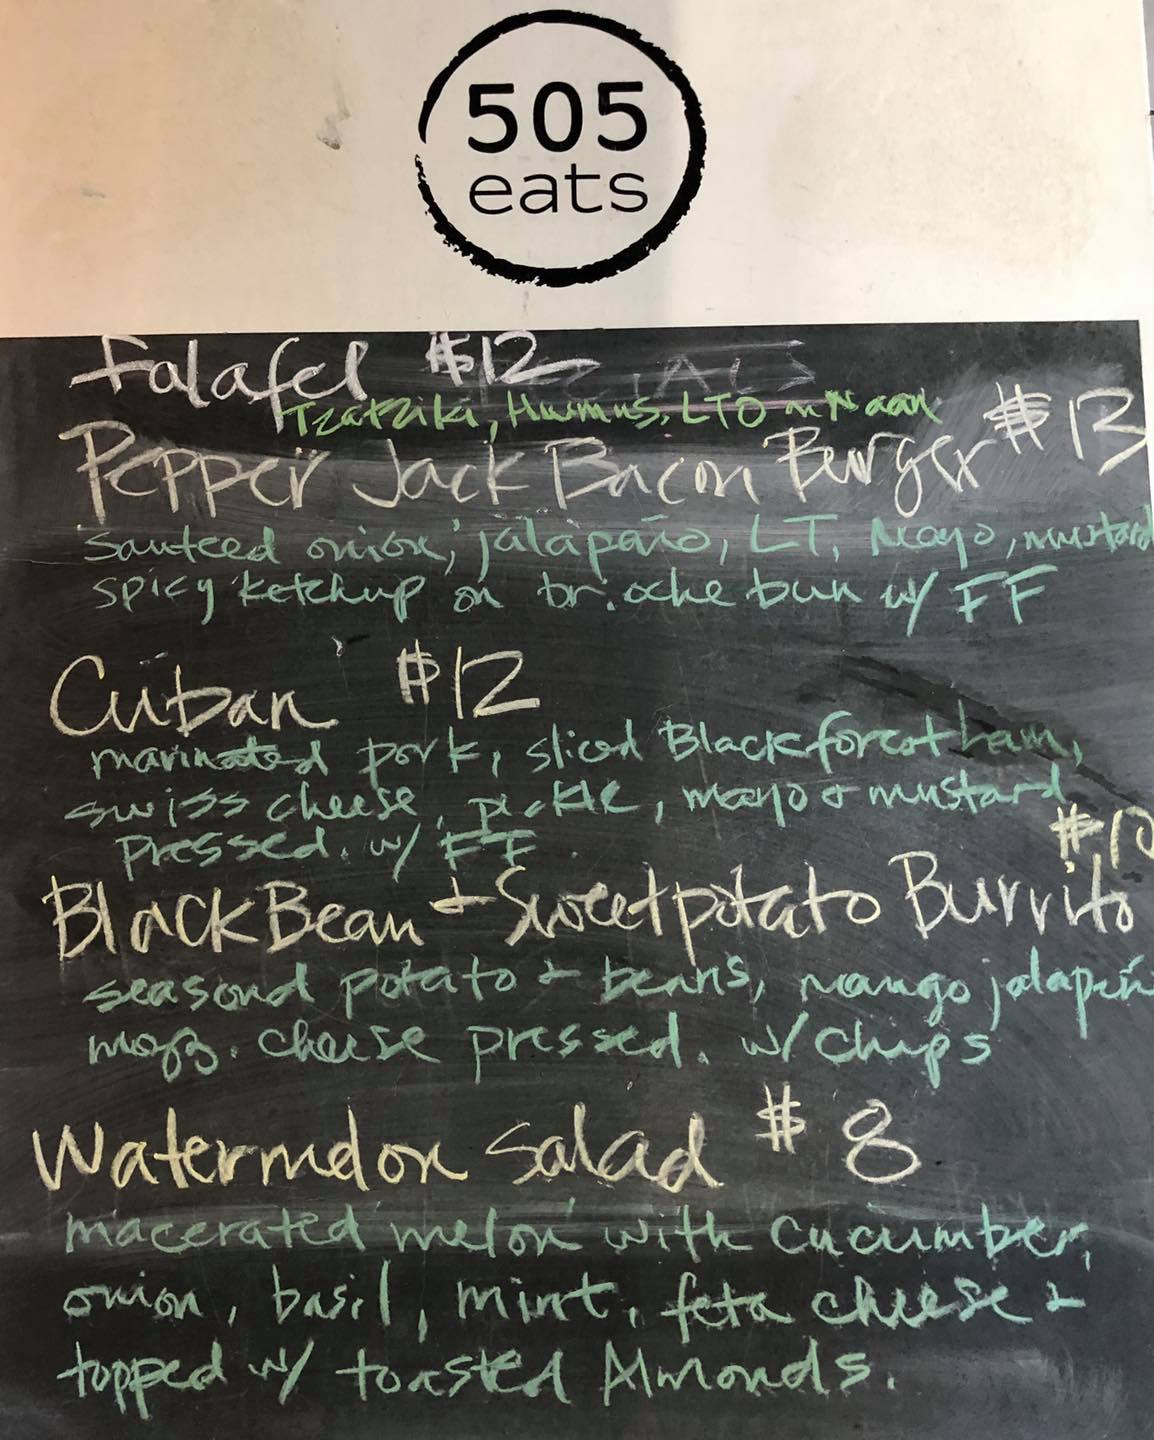 505
eats
Falafel $12
Tzatziki, Hummus, LTO on Naan
Pepper Jack Bacon Burger $13
sauteed onion, jalapaño, LT, Mayo, mustard
spicy ketchup on brioche bun w/ FF
Cuban $12
marinated pork, sliced Blackforest ham,
swiss cheese, pickle, mayo + mustard
pressed. w/ FF
$10
Black Bean + Sweetpotato Burrito
seasond potato + beans, mango jalapeñ
mozz. cheese pressed. w/ chips
Watermelon Salad $8
macerated melon with cucumber,
onion, basil, mint, feta cheese +
topped w/ toasted Almonds.